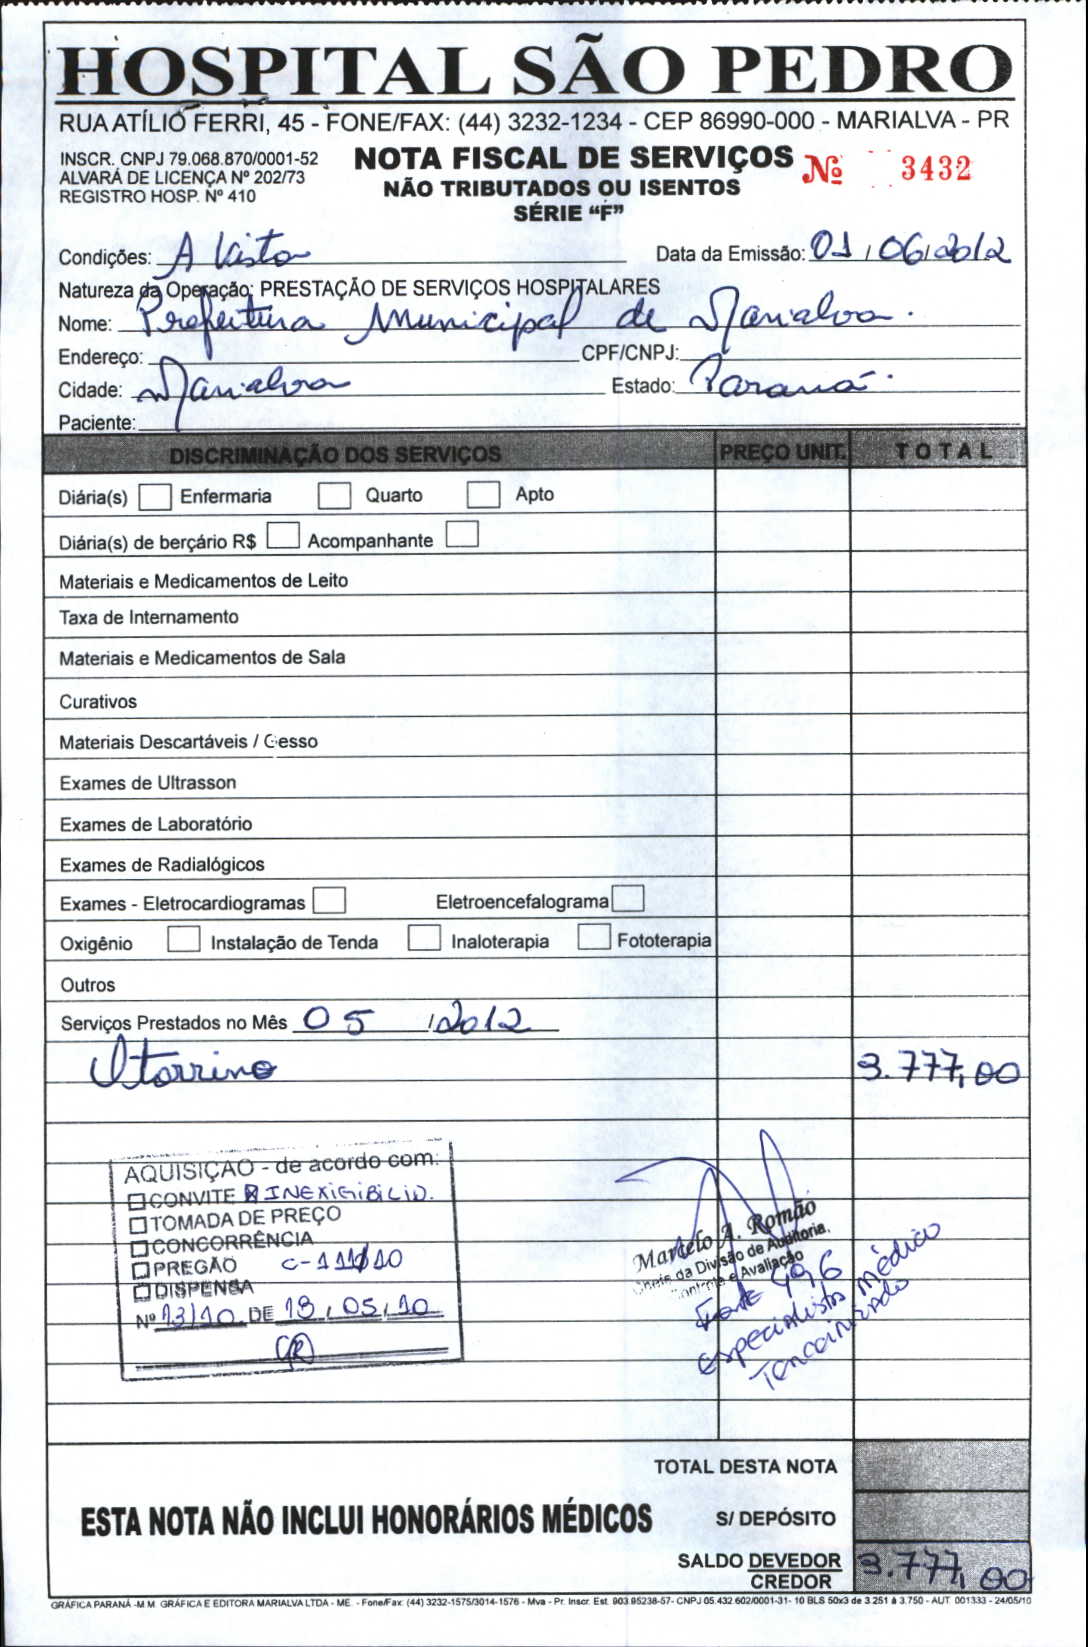 HOSPITAL SÃO PEDRO
RUA ATÍLIO FERRI, 45 - FONE/FAX: (44) 3232-1234 - CEP 86990-000 - MARIALVA - PR
INSCR. CNPJ 79.068.870/0001-52
ALVARÁ DE LICENÇA Nº 202/73
REGISTRO HOSP. Nº 410
NOTA FISCAL DE SERVIÇOS
NÃO TRIBUTADOS OU ISENTOS
SÉRIE “F”
Nº 3432
Condições: A Vista Data da Emissão: 01/06/2012
Natureza da Operação: PRESTAÇÃO DE SERVIÇOS HOSPITALARES
Nome: Prefeitura Municipal de Marialva.
Endereço: CPF/CNPJ:
Cidade: Marialva Estado: Paraná.
Paciente:
DISCRIMINAÇÃO DOS SERVIÇOS PREÇO UNIT. TOTAL
Diária(s) Enfermaria Quarto Apto
Diária(s) de berçário R$ Acompanhante
Materiais e Medicamentos de Leito
Taxa de Internamento
Materiais e Medicamentos de Sala
Curativos
Materiais Descartáveis / Gesso
Exames de Ultrasson
Exames de Laboratório
Exames de Radialógicos
Exames - Eletrocardiogramas Eletroencefalograma
Oxigênio Instalação de Tenda Inaloterapia Fototerapia
Outros
Serviços Prestados no Mês 05 /2012
Otorrino 3.777,00
AQUISIÇÃO - de acordo com:
CONVITE X INEXIGIBILID.
TOMADA DE PREÇO
CONCORRÊNCIA
PREGÃO C-111/10
DISPENSA
Nº 13/10 DE 18/05/10
Marcelo A. Romão
Chefe da Divisão de Auditoria,
Controle e Avaliação
Fonte 496
Especialista Médico
Terceirizado
TOTAL DESTA NOTA
ESTA NOTA NÃO INCLUI HONORÁRIOS MÉDICOS
S/ DEPÓSITO
SALDO DEVEDOR
CREDOR
3.777,00
GRÁFICA PARANÁ - M.M. GRÁFICA E EDITORA MARIALVA LTDA - ME. - Fone/Fax: (44) 3232-1575/3014-1576 - Mva - Pr. Inscr. Est. 903.95238-57 - CNPJ 05.432.602/0001-31 - 10 BLS 50x3 de 3.251 à 3.750 - AUT. 001333 - 24/05/10